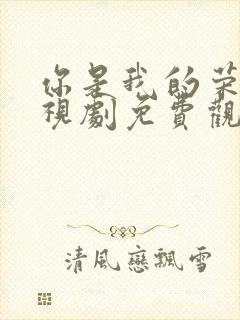 你是我的荣
視劇免費觀
清風戀飄雪